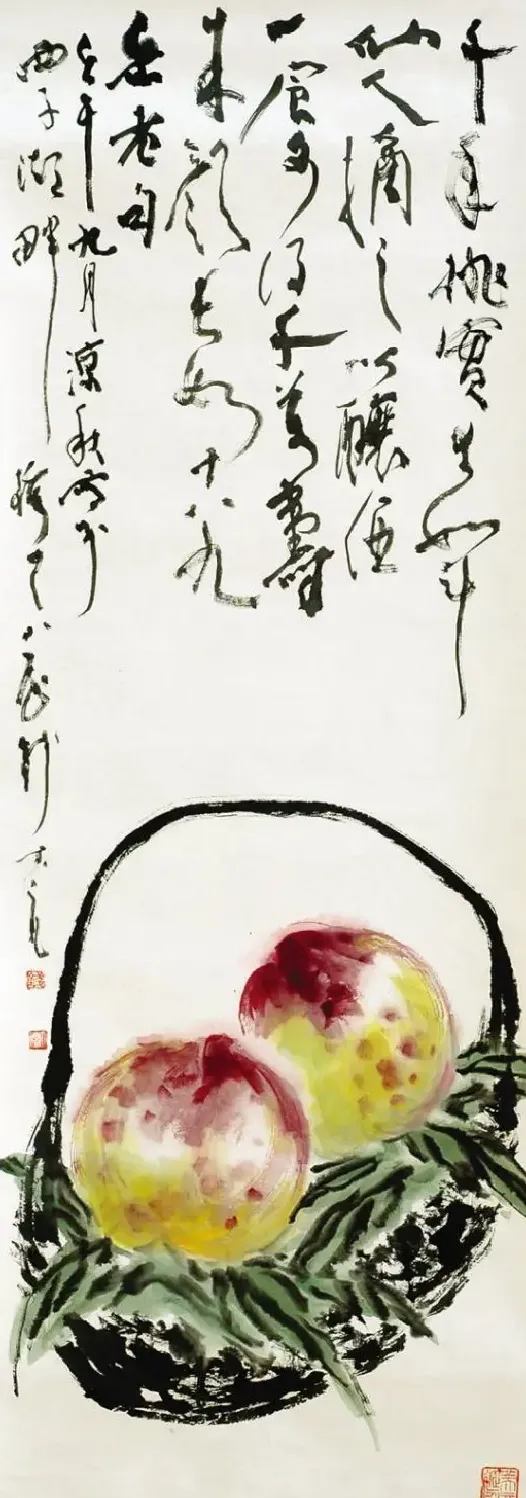 千年桃實大如斗
仙人摘之以釀酒
一食可得千萬壽
朱顏長如十八九
缶老句
壬午九月涼秋時於
西子湖畔